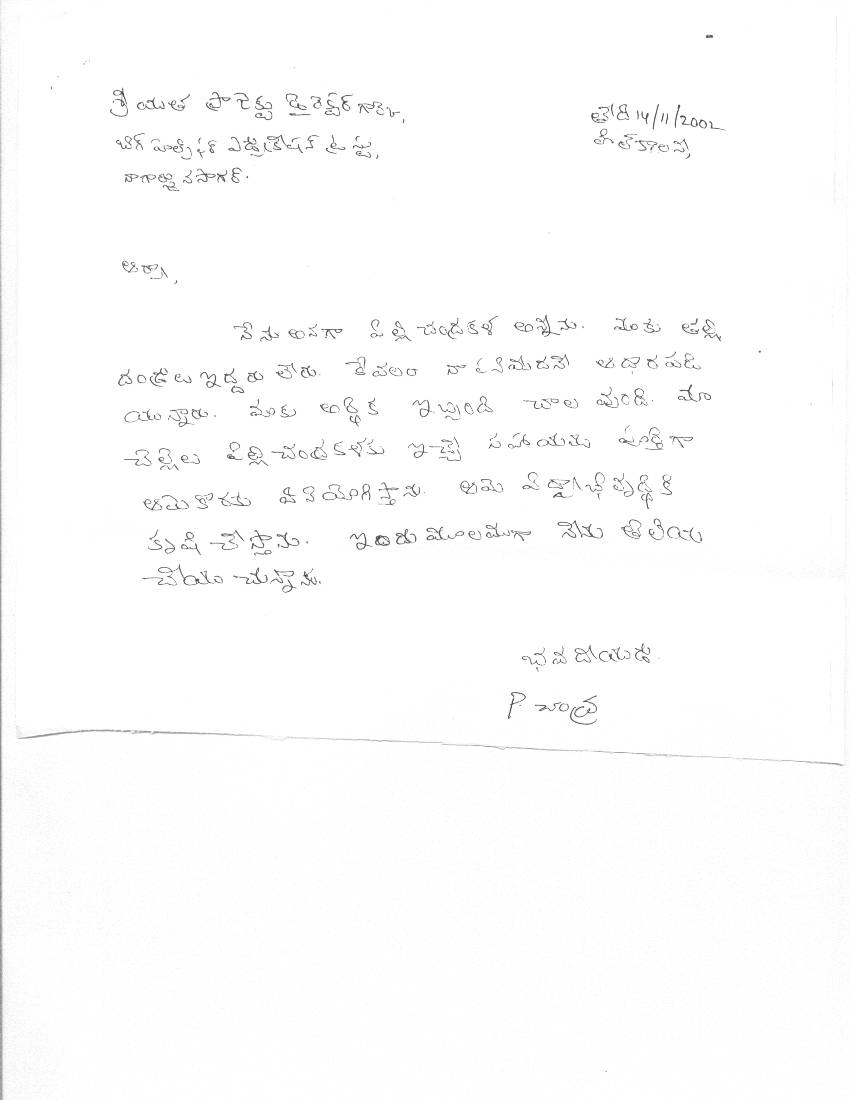 శ్రీయుత ప్రాజెక్టు డైరెక్టర్ గారికి,
తేది 14/11/2002
బిగ్ హెల్ప్ ఫర్ ఎడ్యుకేషన్ ట్రస్టు,
హిల్ కాలని
నాగార్జునసాగర్.
ఆర్యా,
నేను అనగా పిల్లి చంద్రకళ అన్నను. మాకు తల్లి
దండ్రులు ఇద్దరు లేరు. కేవలం నా పనిమీదనే ఆధారపడి
యున్నారు. మాకు ఆర్థిక ఇబ్బంది చాల వుంది. మా
చెల్లెలు పిల్లి చంద్రకళకు ఇచ్చే సహాయము పూర్తిగా
ఆమెకొరకు వినియోగిస్తాను. ఆమె విద్యాభివృద్ధికి
కృషి చేస్తాను. ఇందుమూలముగా నేను తెలియ
చేయుచున్నాను.
భవదీయుడు
P. చంద్ర